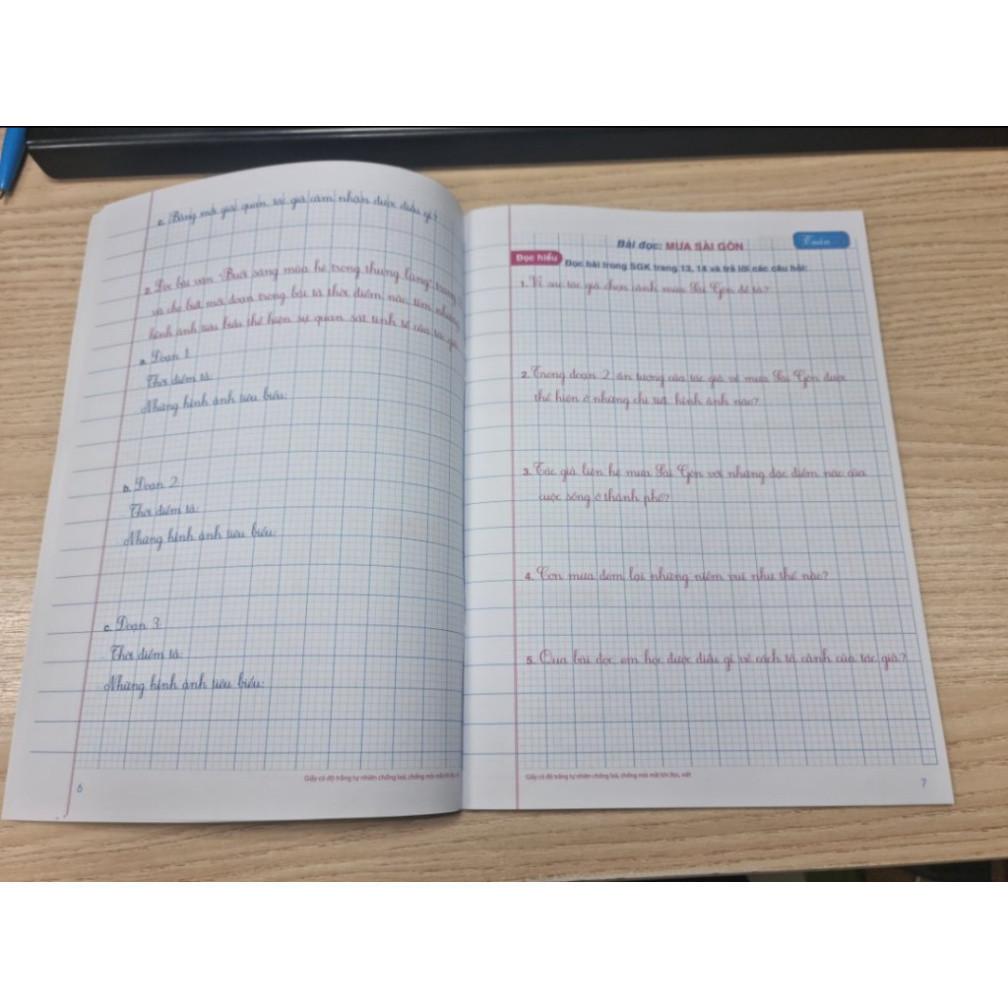 c. Bằng mỗi giác quan, tác giả cảm nhận được điều gì?
2. Đọc bài văn "Buổi sáng mùa hè trong thung lũng" trang
và cho biết mỗi đoạn trong bài tả thời điểm nào, tìm những
hình ảnh tiêu biểu thể hiện sự quan sát tinh tế của tác giả.
a. Đoạn 1:
Thời điểm tả:
Những hình ảnh tiêu biểu:
b. Đoạn 2:
Thời điểm tả:
Những hình ảnh tiêu biểu:
c. Đoạn 3:
Thời điểm tả:
Những hình ảnh tiêu biểu:
Giấy có độ trắng tự nhiên chống loá, chống mỏi mắt khi đọc,
6
Tuần
Bài đọc: MƯA SÀI GÒN
Đọc hiểu
Đọc bài trong SGK trang 13, 14 và trả lời các câu hỏi:
1. Vì sao tác giả chọn cảnh mưa Sài Gòn để tả?
2. Trong đoạn 2, ấn tượng của tác giả về mưa Sài Gòn được
thể hiện ở những chi tiết, hình ảnh nào?
3. Tác giả liên hệ mưa Sài Gòn với những đặc điểm nào của
cuộc sống ở thành phố?
4. Cơn mưa đem lại những niềm vui như thế nào?
5. Qua bài đọc, em học được điều gì về cách tả cảnh của tác giả?
Giấy có độ trắng tự nhiên chống loá, chống mỏi mắt khi đọc, viết
7